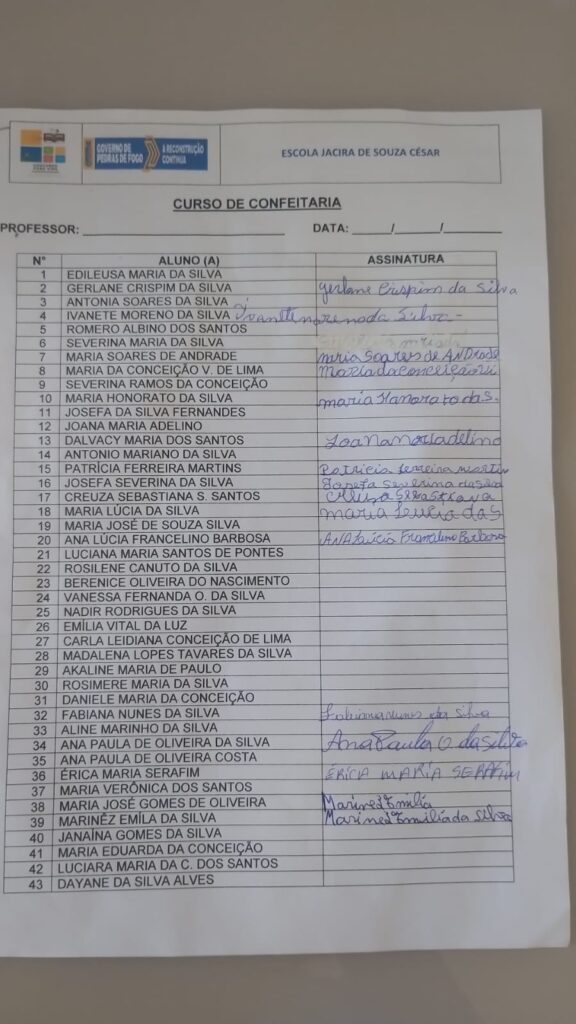 GOVERNO DE PEDRAS DE FOGO A RECONSTRUÇÃO CONTINUA
ESCOLA JACIRA DE SOUZA CÉSAR
CURSO DE CONFEITARIA
PROFESSOR: ____________ DATA: _____/_____/_______
N° ALUNO (A) ASSINATURA
1 EDILEUSA MARIA DA SILVA
2 GERLANE CRISPIM DA SILVA gerlane Crispim da Silva
3 ANTONIA SOARES DA SILVA
4 IVANETE MORENO DA SILVA Ivanete moreno da Silva-
5 ROMERO ALBINO DOS SANTOS
6 SEVERINA MARIA DA SILVA
7 MARIA SOARES DE ANDRADE maria Soares de ANDRADE
8 MARIA DA CONCEIÇÃO V. DE LIMA
9 SEVERINA RAMOS DA CONCEIÇÃO
10 MARIA HONORATO DA SILVA maria Honorato da S.
11 JOSEFA DA SILVA FERNANDES
12 JOANA MARIA ADELINO
13 DALVACY MARIA DOS SANTOS Joana Maria adelino
14 ANTONIO MARIANO DA SILVA
15 PATRÍCIA FERREIRA MARTINS Patricia ferreira martin
16 JOSEFA SEVERINA DA SILVA Josefa Severina da
17 CREUZA SEBASTIANA S. SANTOS Sebastiana
18 MARIA LÚCIA DA SILVA maria Lucia da S
19 MARIA JOSÉ DE SOUZA SILVA
20 ANA LÚCIA FRANCELINO BARBOSA ANA Lúcia Francelino Barbosa
21 LUCIANA MARIA SANTOS DE PONTES
22 ROSILENE CANUTO DA SILVA
23 BERENICE OLIVEIRA DO NASCIMENTO
24 VANESSA FERNANDA O. DA SILVA
25 NADIR RODRIGUES DA SILVA
26 EMÍLIA VITAL DA LUZ
27 CARLA LEIDIANA CONCEIÇÃO DE LIMA
28 MADALENA LOPES TAVARES DA SILVA
29 AKALINE MARIA DE PAULO
30 ROSIMERE MARIA DA SILVA
31 DANIELE MARIA DA CONCEIÇÃO
32 FABIANA NUNES DA SILVA Fabiana nunes da silva
33 ALINE MARINHO DA SILVA
34 ANA PAULA DE OLIVEIRA DA SILVA Ana Paula O da Silva
35 ANA PAULA DE OLIVEIRA COSTA
36 ÉRICA MARIA SERAFIM ÉRICA MARIA SERAFIM
37 MARIA VERÔNICA DOS SANTOS
38 MARIA JOSÉ GOMES DE OLIVEIRA Marinez Emília
39 MARINÊZ EMÍLA DA SILVA Marinez Emília da Silva
40 JANAÍNA GOMES DA SILVA
41 MARIA EDUARDA DA CONCEIÇÃO
42 LUCIARA MARIA DA C. DOS SANTOS
43 DAYANE DA SILVA ALVES